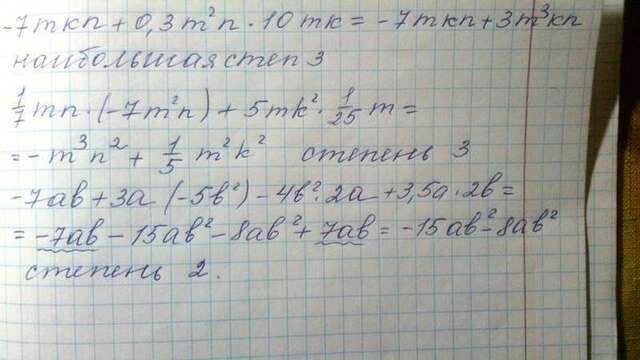 -7mkn + 0,3m²n · 10mk = -7mkn + 3m³kn
наибольшая степ 3
1/7 mn · (-7m²n) + 5mk² · 1/25 m =
= -m³n² + 1/5 m²k² степень 3
-7ab + 3a (-5b²) - 4b² · 2a + 3,5a · 2b =
= -7ab - 15ab² - 8ab² + 7ab = -15ab² - 8ab²
степень 2.